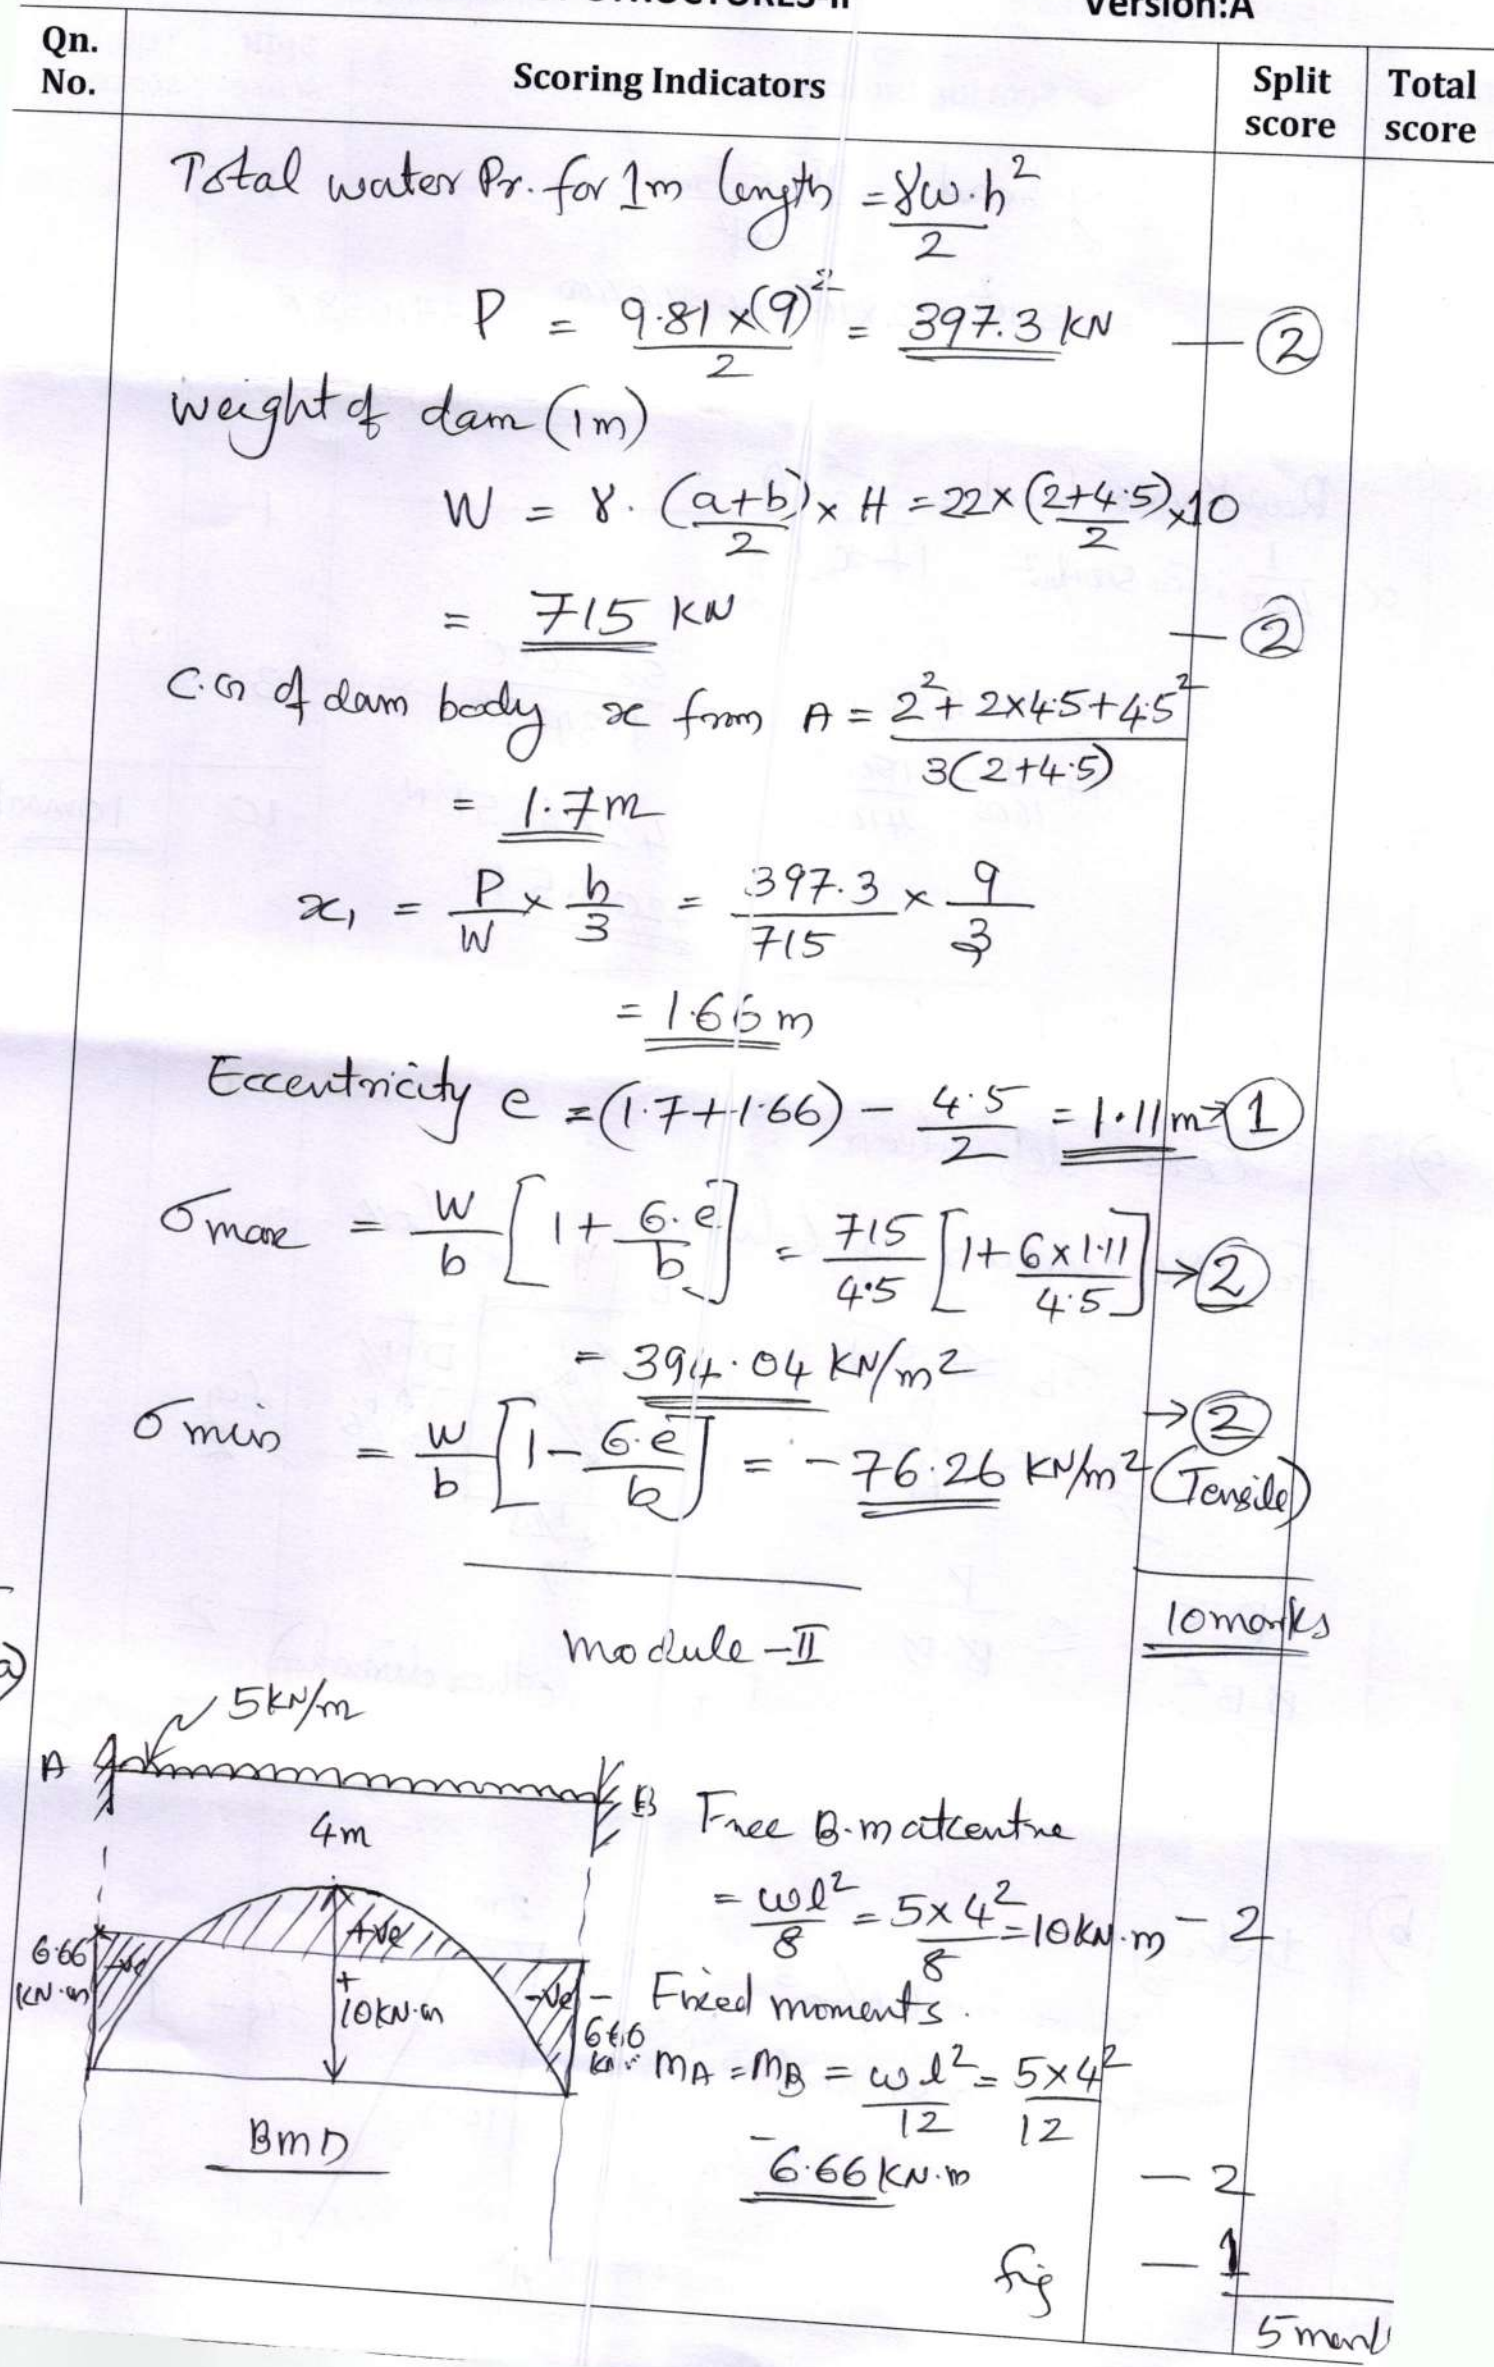 Version:A
Qn. No.
Scoring Indicators
Split score
Total score
Total water Pr. for 1m length = γω.h² / 2
P = 9.81 × (9)² / 2 = 397.3 KN — 2
weight of dam (1m)
W = γ. (a+b)/2 × H = 22 × (2+4.5)/2 × 10
= 715 KN — 2
C.G of dam body x from A = 2² + 2×4.5 + 4.5² / 3(2+4.5)
= 1.7m
x₁ = P/W × h/3 = 397.3/715 × 9/3
= 1.66 m
Eccentricity e = (1.7+1.66) − 4.5/2 = 1.11 m → 1
σ max = W/b [1 + 6.e/b] = 715/4.5 [1 + 6×1.11/4.5] → 2
= 394.04 KN/m²
σ min = W/b [1 − 6.e/b] = −76.26 KN/m² (Tensile) → 2
10 marks
module -II
a)
5 KN/m
A
B
4m
Free B.m at centre
= ωl²/8 = 5×4²/8 = 10 KN.m - 2
6.66 KN.m
-ve
+ve
+
10 KN.m
-ve
6.66 KN.m
BMD
Fixed moments.
MA = MB = ωl²/12 = 5×4²/12
6.66 KN.m — 2
fig — 1
5 mark